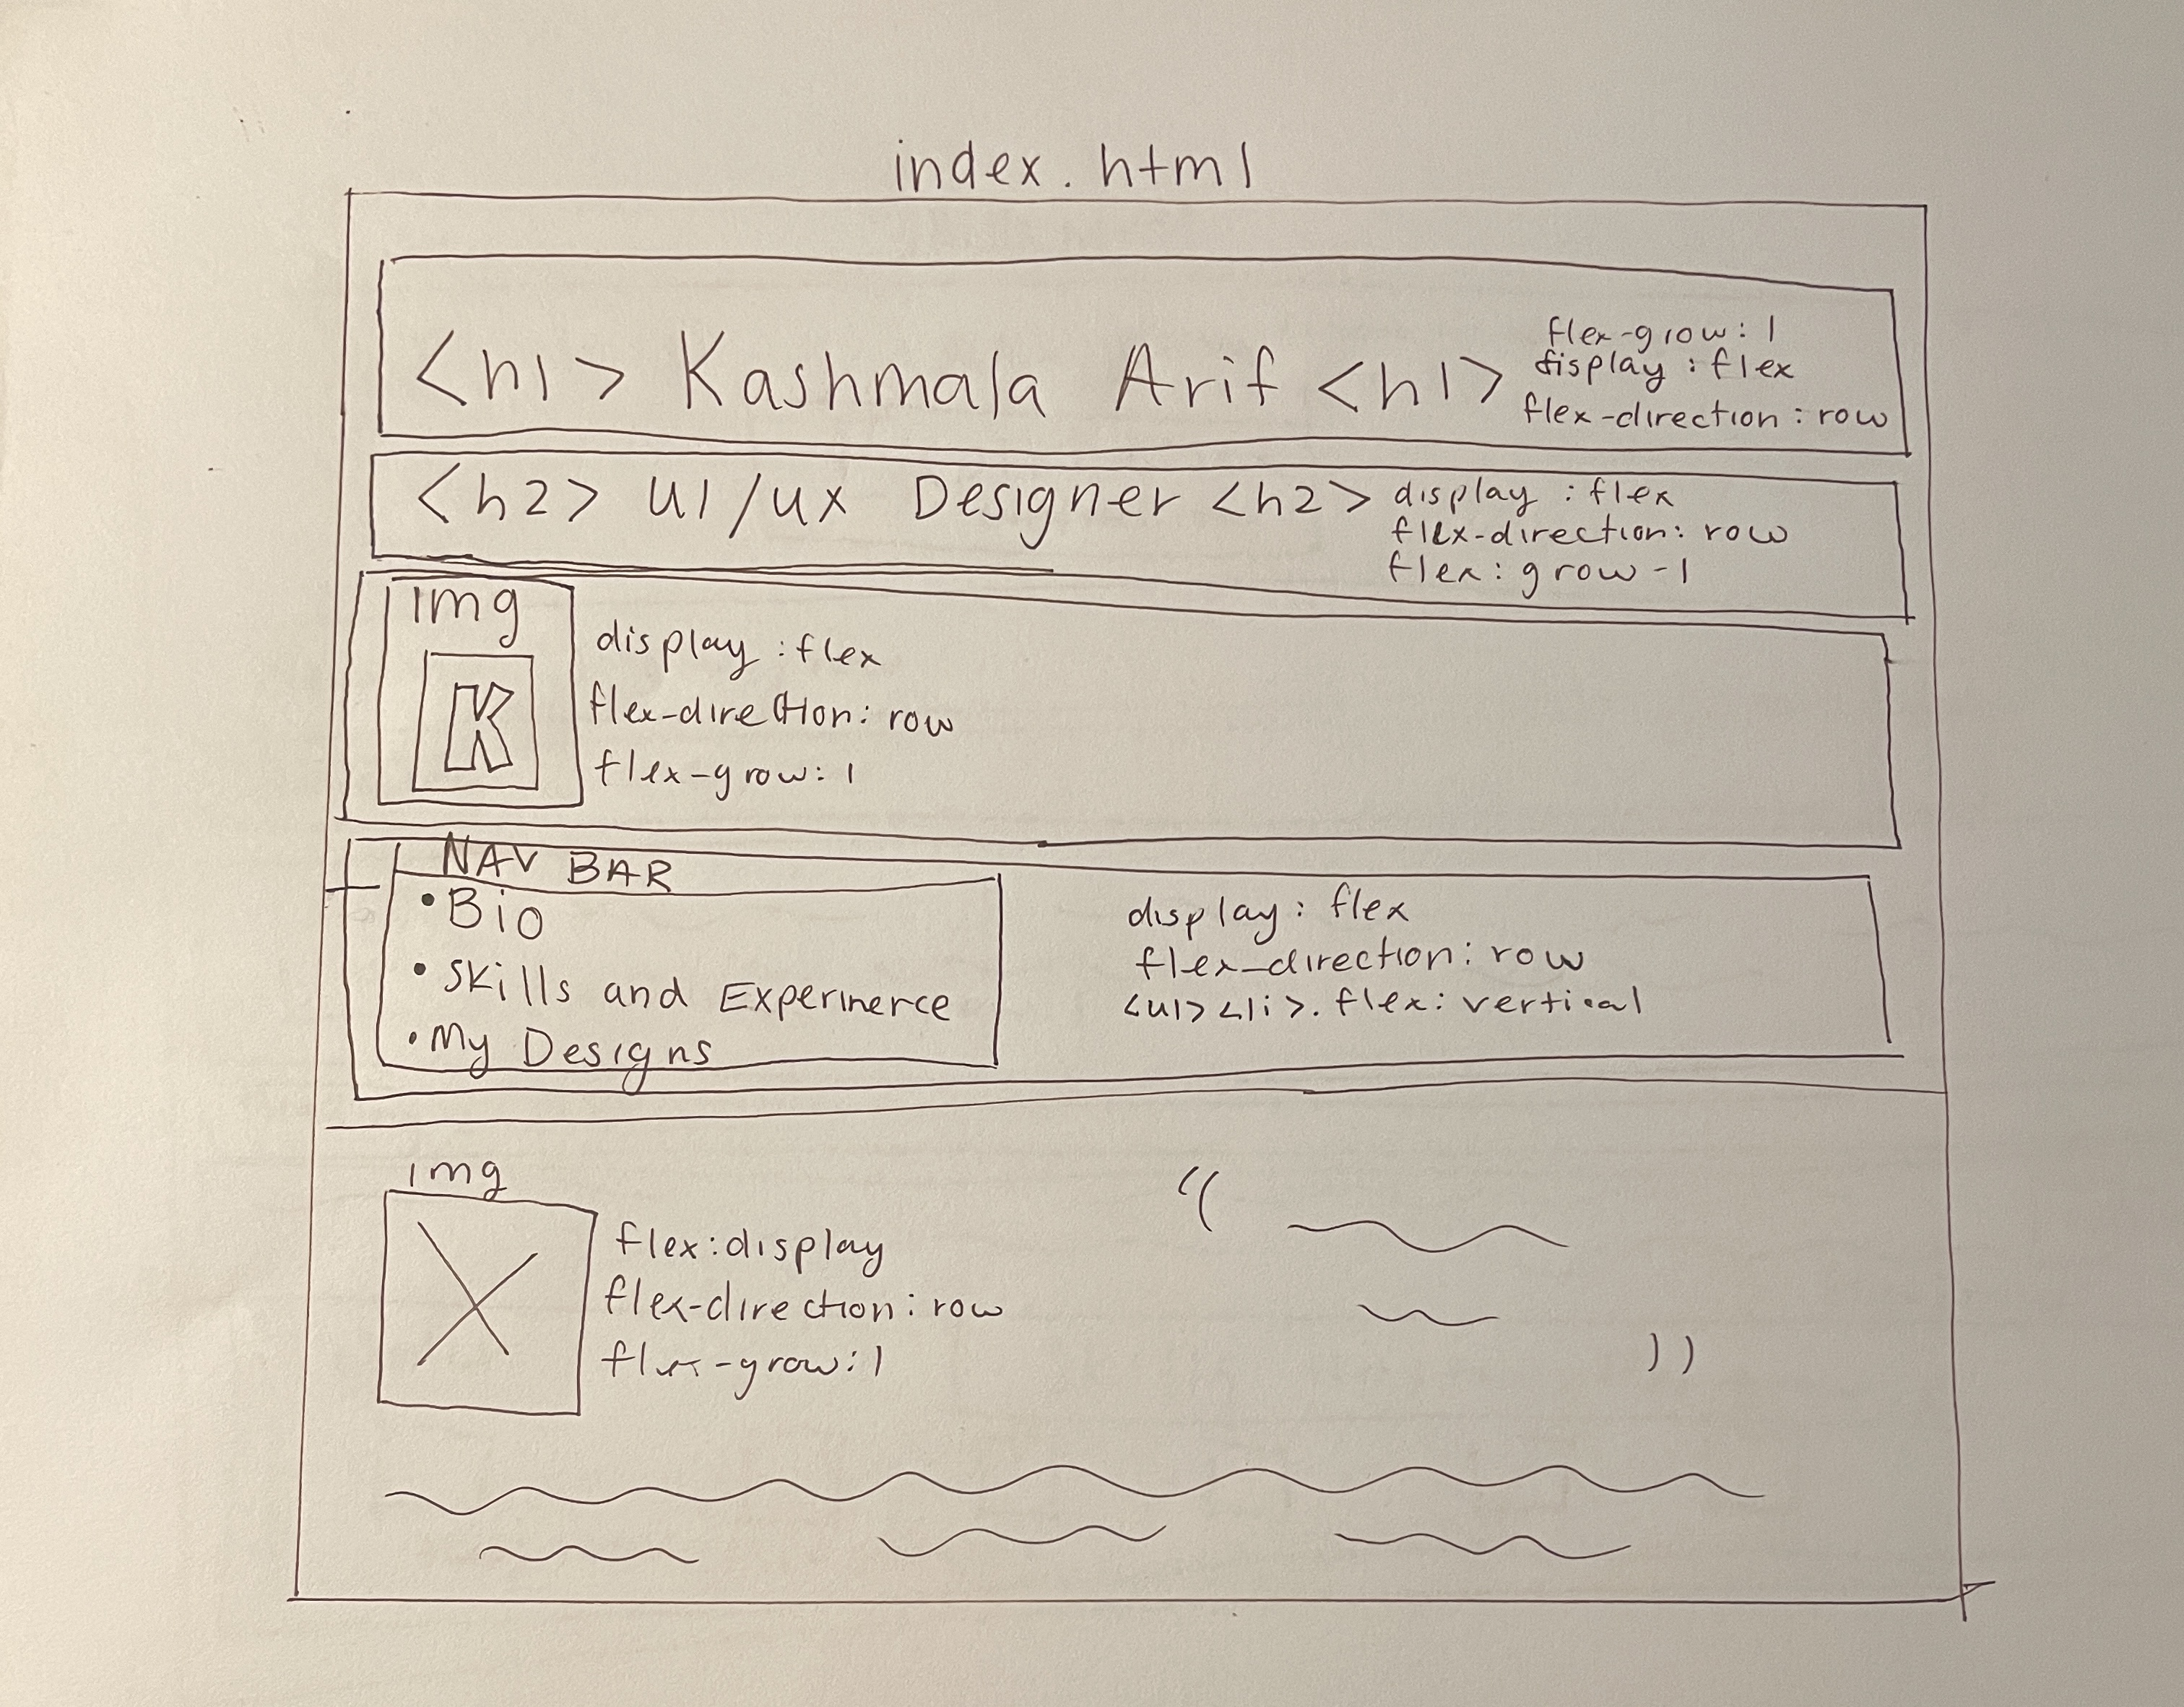 index.html
<h1> Kashmala Arif <h1>
flex-grow: 1
display: flex
flex-direction: row
<h2> UI/UX Designer <h2>
display: flex
flex-direction: row
flex: grow-1
img
K
display: flex
flex-direction: row
flex-grow: 1
NAV BAR
• Bio
• Skills and Experinerce
• My Designs
display: flex
flex-direction: row
<ul><li>. flex: vertical
img
flex: display
flex-direction: row
flex-grow: 1